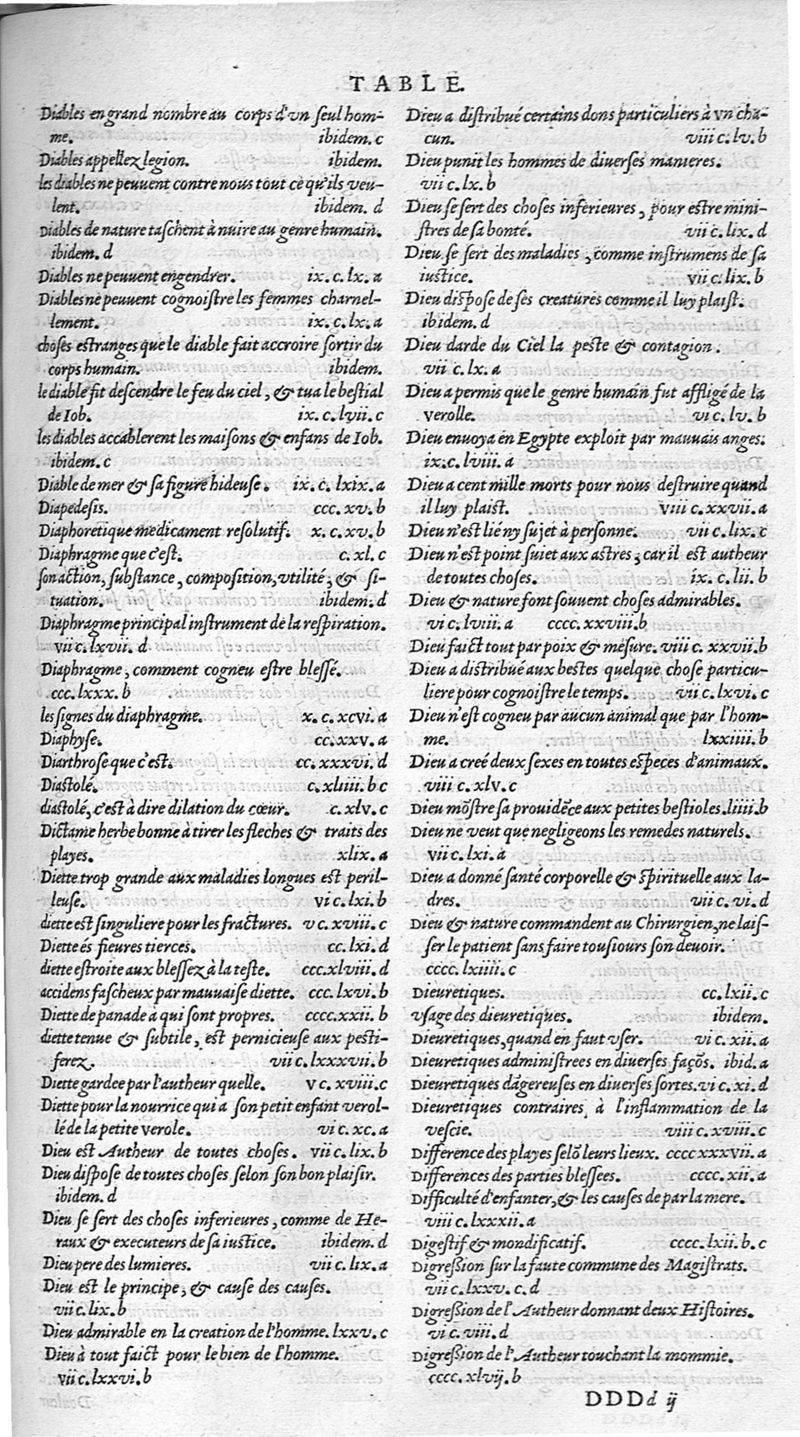 TABLE.
Diables en grand nombre au corps d'vn ſeul hom-
me. ibidem. c
Diables appellez legion. ibidem.
les diables ne peuuent contre nous tout ce qu'ils veu-
lent. ibidem. d
Diables de nature taſchent à nuire au genre humain.
ibidem. d
Diables ne peuuent engendrer. ix. c. lx. a
Diables ne peuuent cognoiſtre les femmes charnel-
lement. ix. c. lx. a
choſes eſtranges que le diable fait accroire ſortir du
corps humain. ibidem.
le diable fit deſcendre le feu du ciel, & tua le beſtial
de Iob. ix. c. lvii. c
les diables accablerent les maiſons & enfans de Iob.
ibidem. c
Diable de mer & ſa figure hideuſe. ix. c. lxix. a
Diapedeſis. ccc. xv. b
Diaphoretique medicament reſolutif. x. c. xv. b
Diaphragme que c'eſt. c. xl. c
ſon action, ſubſtance, compoſition, vtilité, & ſi-
tuation. ibidem. d
Diaphragme principal inſtrument de la reſpiration.
vii c. lxvii. d
Diaphragme, comment cogneu eſtre bleſſé.
ccc. lxxx. b
les ſignes du diaphragme. x. c. xcvi. a
Diaphyſe. cc. xxv. a
Diarthroſe que c'eſt. cc. xxxvi. d
Diaſtolé. c. xliii. b c
diaſtolé, c'eſt à dire dilation du cœur. c. xlv. c
Dictame herbe bonne à tirer les fleches & traits des
playes. xlix. a
Diette trop grande aux maladies longues eſt peril-
leuſe. vi c. lxi. b
diette eſt ſinguliere pour les fractures. v c. xviii. c
Diette és fieures tierces. cc. lxi. d
diette eſtroite aux bleſſez à la teſte. ccc. xlviii. d
accidens faſcheux par mauuaiſe diette. ccc. lxvi. b
Diette de panade à qui ſont propres. cccc. xxii. b
diette tenue & ſubtile, eſt pernicieuſe aux peſti-
ferez. vii c. lxxxvii. b
Diette gardee par l'autheur quelle. v c. xviii. c
Diette pour la nourrice qui a ſon petit enfant verol-
lé de la petite verole. vi c. xc. a
Dieu eſt Autheur de toutes choſes. vii c. lix. b
Dieu diſpoſe de toutes choſes ſelon ſon bon plaiſir.
ibidem. d
Dieu ſe ſert des choſes inferieures, comme de He-
raux & executeurs de ſa iuſtice. ibidem. d
Dieu pere des lumieres. vii c. lix. a
Dieu eſt le principe, & cauſe des cauſes.
vii c. lix. b
Dieu admirable en la creation de l'homme. lxxv. c
Dieu à tout faict pour le bien de l'homme.
vii c. lxxvi. b
Dieu a diſtribué certains dons particuliers à vn cha-
cun. viii c. lv. b
Dieu punit les hommes de diuerſes manieres.
vii c. lx. b
Dieu ſe ſert des choſes inferieures, pour eſtre mini-
ſtres de ſa bonté. vii c. lix. d
Dieu ſe ſert des maladies, comme inſtrumens de ſa
iuſtice. vii c. lix. b
Dieu diſpoſe de ſes creatures comme il luy plaiſt.
ibidem. d
Dieu darde du Ciel la peſte & contagion.
vii c. lx. a
Dieu a permis que le genre humain fut affligé de la
verolle. vi c. lv. b
Dieu enuoya en Egypte exploit par mauuais anges.
ix. c. lviii. a
Dieu a cent mille morts pour nous deſtruire quand
il luy plaiſt. viii c. xxvii. a
Dieu n'eſt lié ny ſujet à perſonne. vii c. lix. c
Dieu n'eſt point ſuiet aux aſtres, car il eſt autheur
de toutes choſes. ix. c. lii. b
Dieu & nature font ſouuent choſes admirables.
vi c. lviii. a cccc. xxviii. b
Dieu faict tout par poix & meſure. viii c. xxvii. b
Dieu a diſtribué aux beſtes quelque choſe particu-
liere pour cognoiſtre le temps. vii c. lxvi. c
Dieu n'eſt cogneu par aucun animal que par l'hom-
me. lxxiiii. b
Dieu a creé deux ſexes en toutes eſpeces d'animaux.
viii c. xlv. c
Dieu mõſtre ſa prouidẽce aux petites beſtioles. liiii. b
Dieu ne veut que negligeons les remedes naturels.
vii c. lxi. a
Dieu a donné ſanté corporelle & ſpirituelle aux la-
dres. vii c. vi. d
Dieu & nature commandent au Chirurgien, ne laiſ-
ſer le patient ſans faire touſiours ſon deuoir.
cccc. lxiiii. c
Dieuretiques. cc. lxii. c
vſage des dieuretiques. ibidem.
Dieuretiques, quand en faut vſer. vi c. xii. a
Dieuretiques adminiſtrees en diuerſes façõs. ibid. a
Dieuretiques dãgereuſes en diuerſes ſortes. vi c. xi. d
Dieuretiques contraires à l'inflammation de la
veſcie. viii c. xviii. c
Difference des playes ſelõ leurs lieux. cccc xxxvii. a
Differences des parties bleſſees. cccc. xii. a
Difficulté d'enfanter, & les cauſes de par la mere.
viii c. lxxxii. a
Digeſtif & mondificatif. cccc. lxii. b. c
Digreſſion ſur la faute commune des Magiſtrats.
vii c. lxxv. c. d
Digreſſion de l'Autheur donnant deux Hiſtoires.
vi c. viii. d
Digreſſion de l'Autheur touchant la mommie.
cccc. xlvij. b
DDDd ij